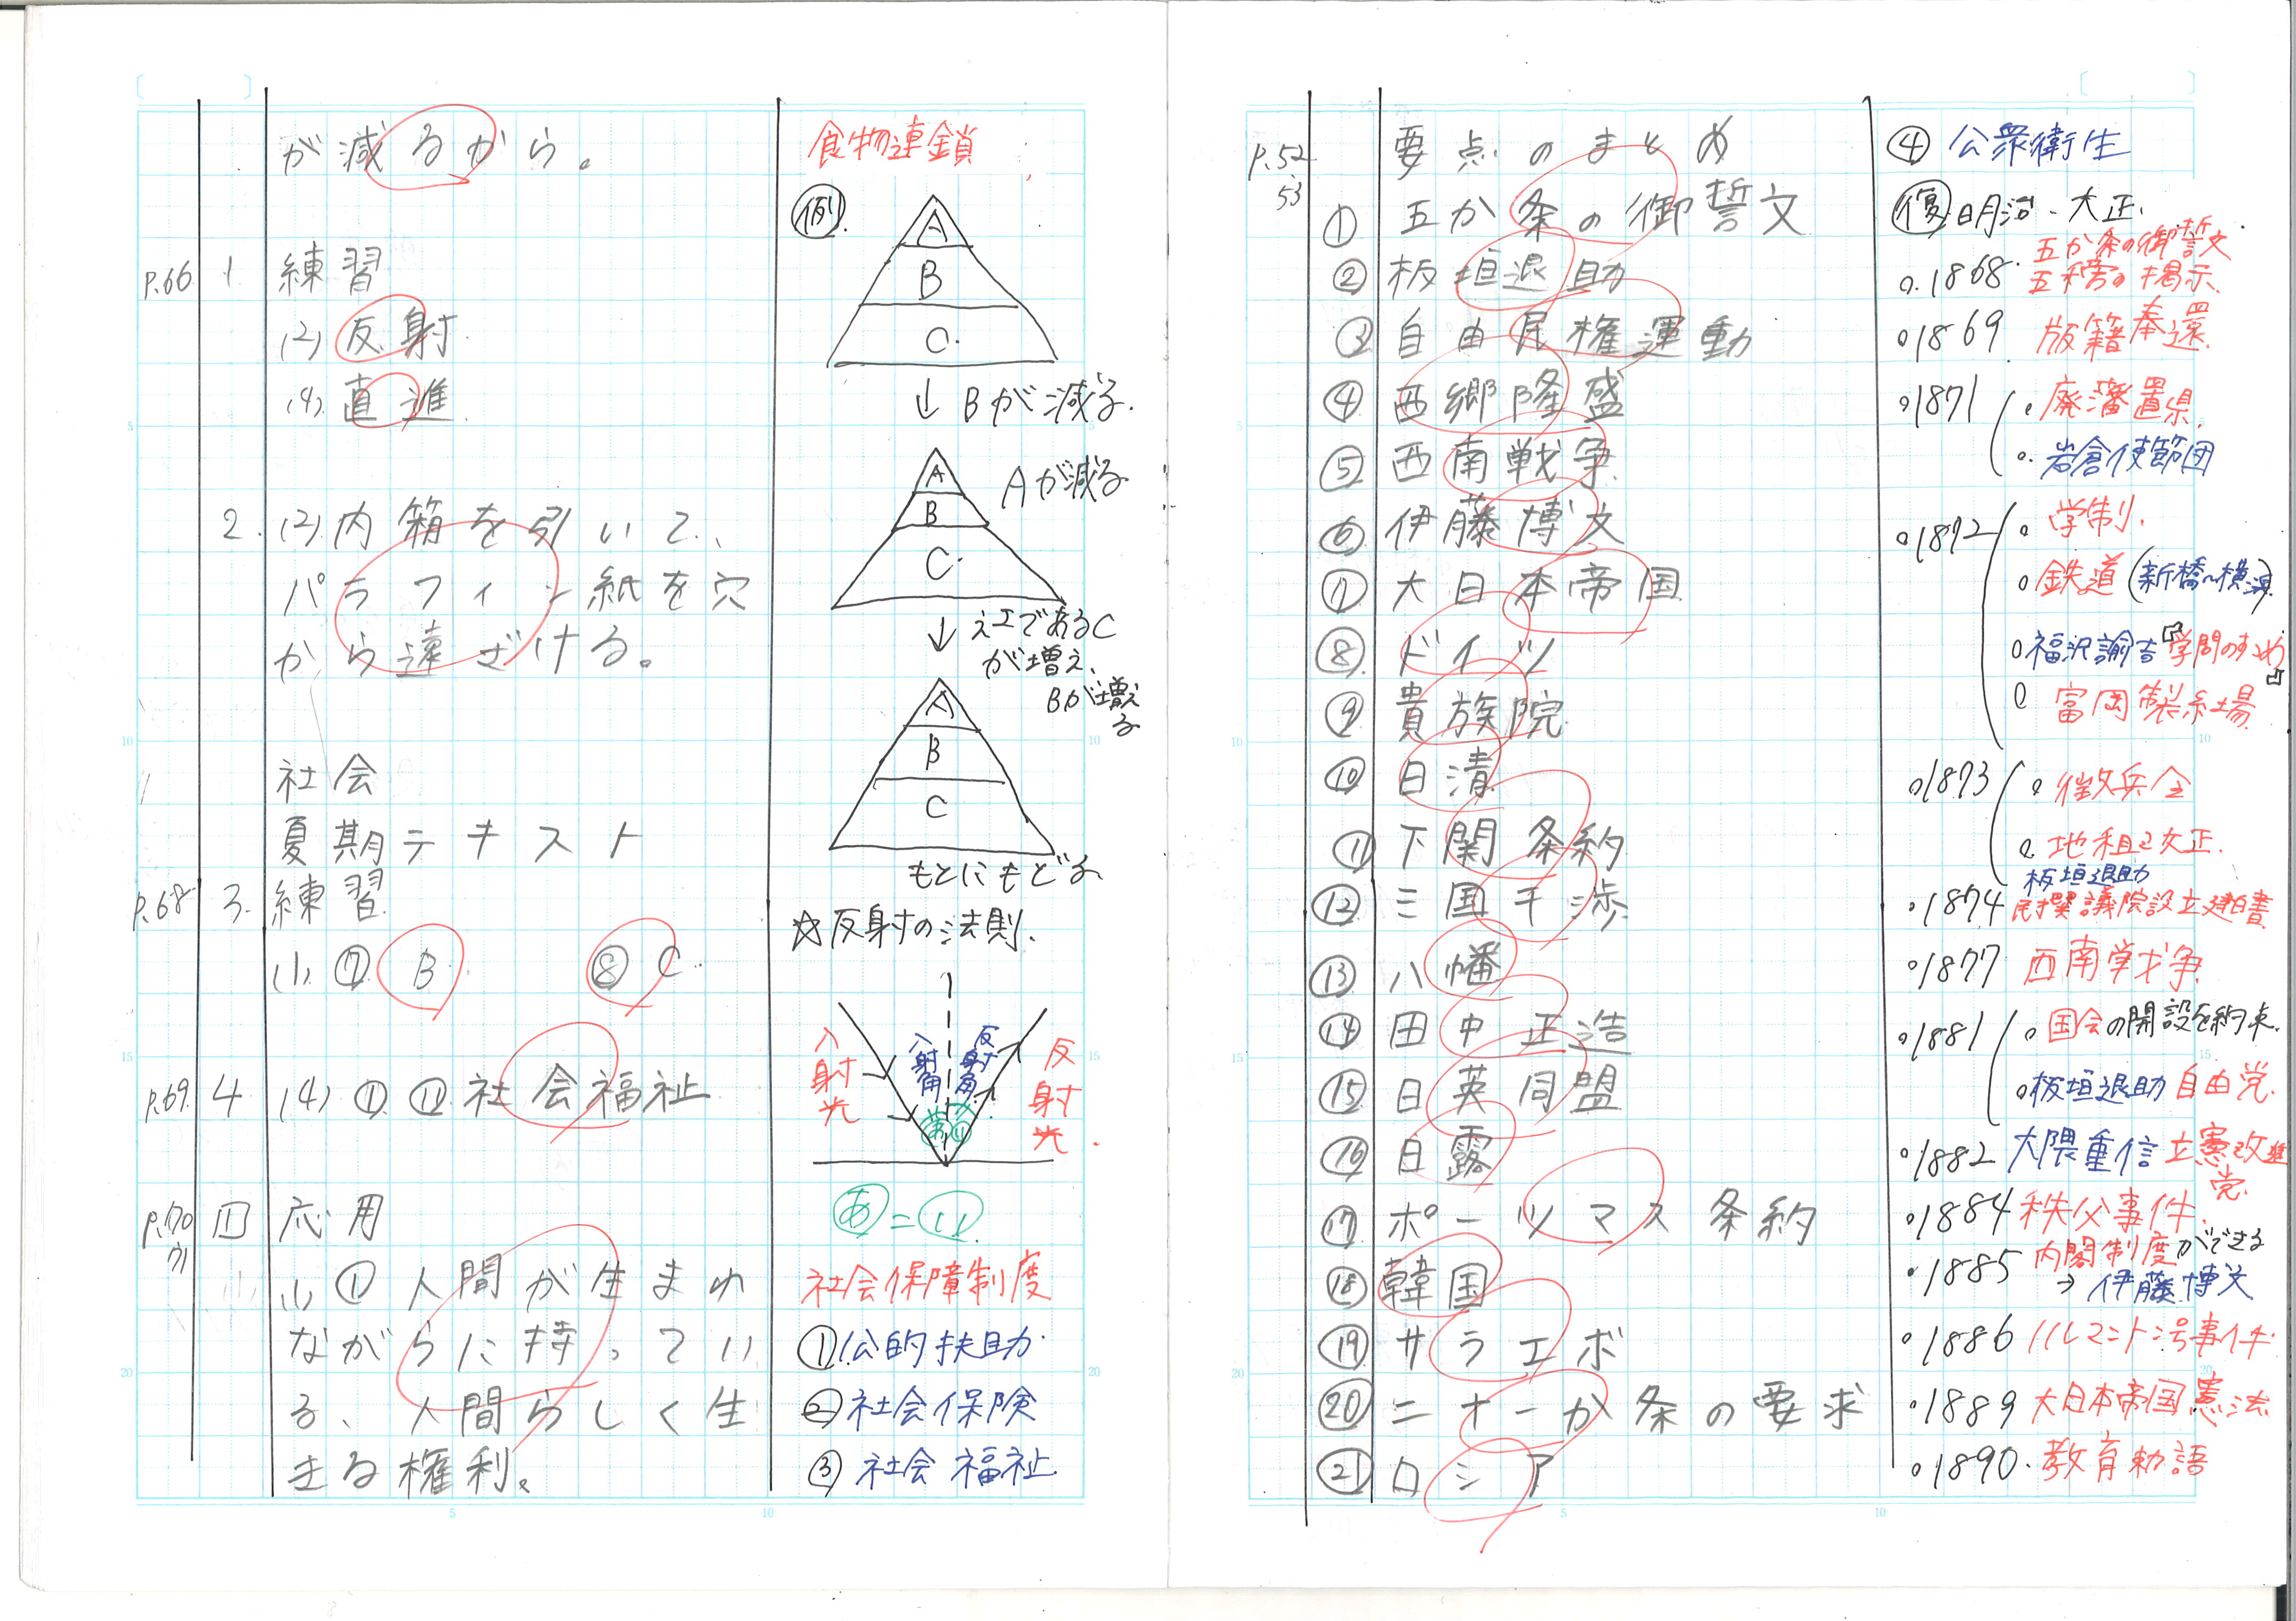 が減るから。
p.66 1. 練習
(2) 反射
(4). 直進
2. (2) 内箱を引いて、
パラフィン紙を穴
から遠ざける。
社会
夏期テキスト
p.68 3. 練習
(1) ⑦ B ⑧ C
p.69 4 (4) ① ⑪ 社会福祉
p.70 71 1 応用
(1) ① 人間が生まれ
ながらに持ってい
る、人間らしく生
きる権利。
食物連鎖
例
A
B
C
↓ Bが減る.
A
B
C
Aが減る
↓ えさであるC
が増え、
Bが増え
る
A
B
C
もとにもどる
☆反射の法則.
入射光
入射角
反射角
反射光
あ い
あ = い
社会保障制度
① 公的扶助
② 社会保険
③ 社会福祉
p.52 53 要点のまとめ
① 五か条の御誓文
② 板垣退助
③ 自由民権運動
④ 西郷隆盛
⑤ 西南戦争
⑥ 伊藤博文
⑦ 大日本帝国
⑧ ドイツ
⑨ 貴族院
⑩ 日清
⑪ 下関条約
⑫ 三国干渉
⑬ 八幡
⑭ 田中正造
⑮ 日英同盟
⑯ 日露
⑰ ポーツマス条約
⑱ 韓国
⑲ サラエボ
⑳ 二十一か条の要求
㉑ ロシア
④ 公衆衛生
復 明治、大正.
五か条の御誓文
○.1868. 五榜の掲示.
○1869. 版籍奉還.
○1871 ○ 廃藩置県.
○ 岩倉使節団
○1872 ○ 学制.
○ 鉄道 (新橋〜横浜)
○福沢諭吉『学問のすゝめ』
○ 富岡製糸場
○1873 ○ 徴兵令
○ 地租改正.
板垣退助
○1874 民撰議院設立建白書
○1877 西南戦争
○1881 ○ 国会の開設を約束.
○板垣退助 自由党.
○1882 大隈重信 立憲改進
党.
○1884 秩父事件.
○1885 内閣制度ができる
→ 伊藤博文
○1886 ノルマントン号事件
○1889 大日本帝国憲法
○1890. 教育勅語